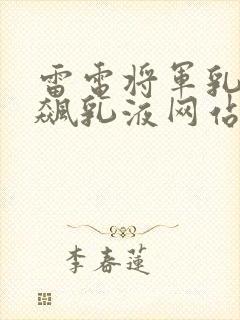 雷電将軍乳
飆乳液网佔
李春蓮